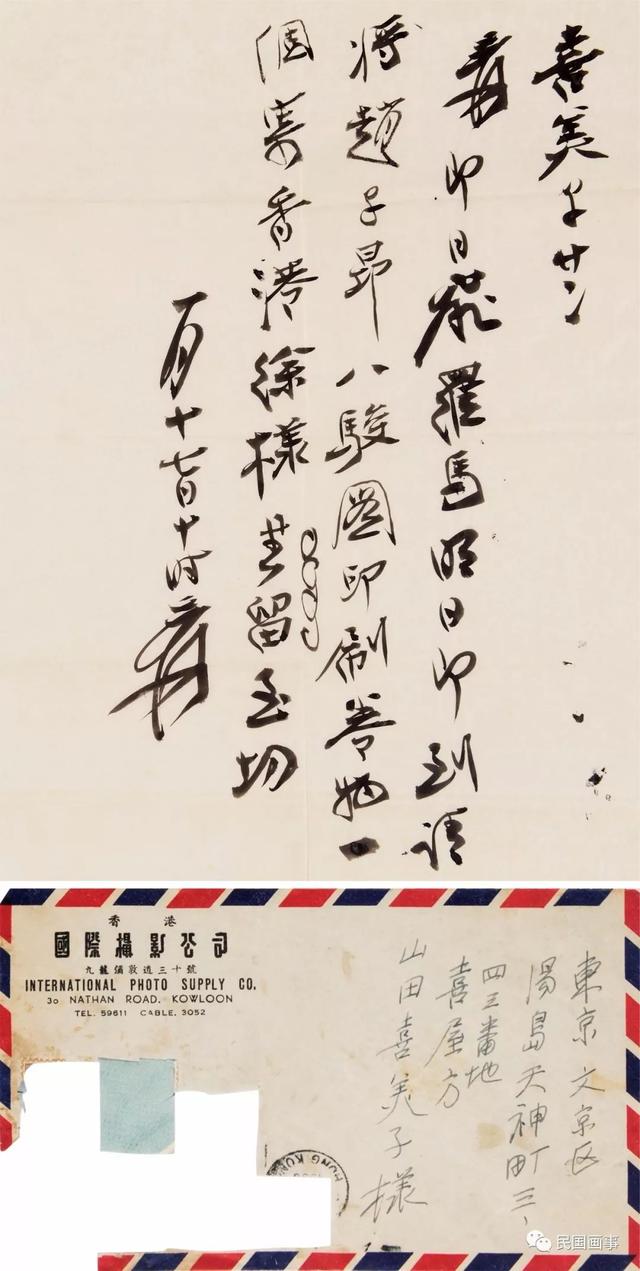 喜美子サン
爰即日飛羅馬明日即到請
将趙子昂八駿圖印刷卷物一
個寄香港徐樣留至切
一月十七日十时爰
香港
國際攝影公司
九龍彌敦道三十號
INTERNATIONAL PHOTO SUPPLY CO.
30 NATHAN ROAD, KOWLOON
TEL. 59611 CABLE. 3052
東京文京区
湯島天神町三、
四三番地
喜屋方
山田喜美子樣
HONG KON
民国画事